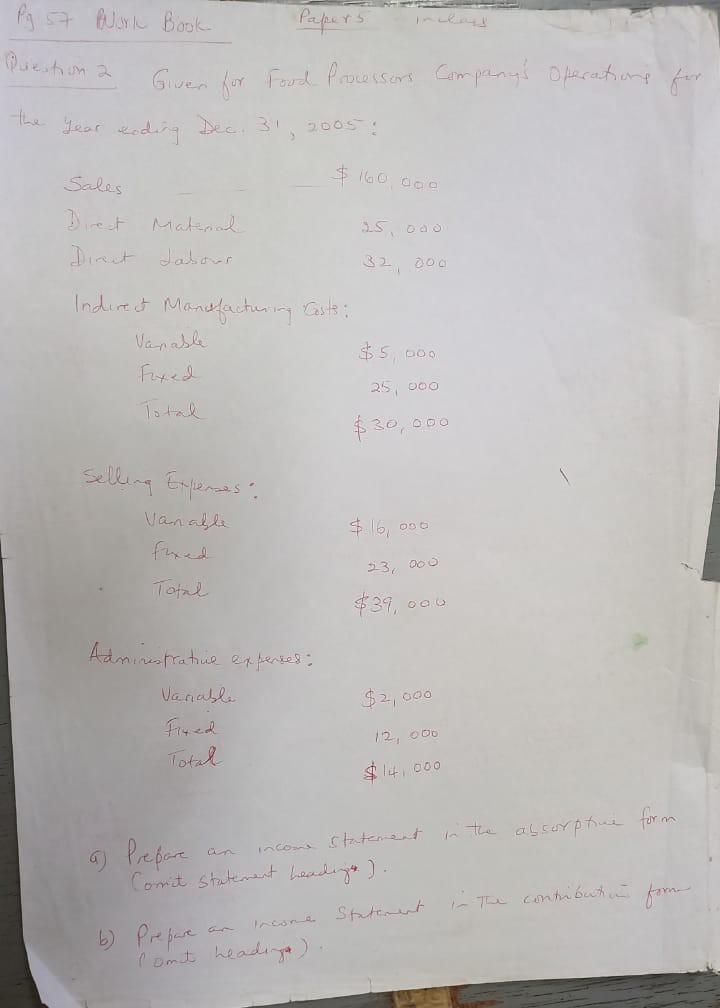 Pg 57 Work Book Papers inclass
Question 2 Given for Food Processors Company's Operations for
the Year ending Dec. 31, 2005:
Sales $ 160,000
Direct Material 25,000
Direct Labour 32,000
Indirect Manufacturing Costs:
Variable $5,000
Fixed 25,000
Total $30,000
Selling Expenses:
Variable $16,000
Fixed 23,000
Total $39,000
Administrative expenses:
Variable $2,000
Fixed 12,000
Total $14,000
a) Prepare an income statement in the absorptive form
(omit statement headings).
b) Prepare an income Statement in The contribution form
(omit headings).